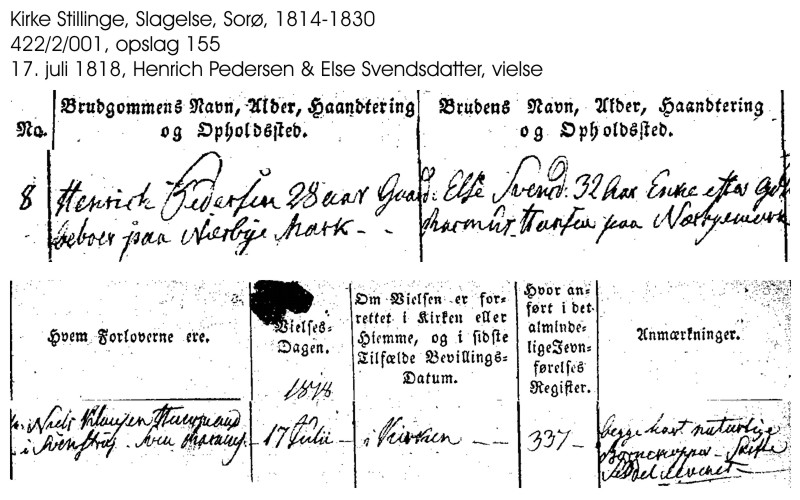 Kirke Stillinge, Slagelse, Sorø, 1814-1830
422/2/001, opslag 155
17. juli 1818, Henrich Pedersen & Else Svendsdatter, vielse
No.
Brudgommens Navn, Alder, Haandtering
og Opholdssted.
Brudens Navn, Alder, Haandtering
og Opholdssted.
8
Henrich Pedersen 28 aar Gaard
beboer paa Nierbye Mark - -
Else Svend. 32 Aar Enke efter
Hansen paa
Hvem Forloverne ere.
Vielses-
Dagen.
1818
Om Vielsen er for-
rettet i Kirken eller
Hiemme, og i sidste
Tilfælde Bevillings-
Datum.
Hvor an-
ført i det
alminde-
lige Jevn-
førelses
Register.
Anmærkninger.
Niels Clausen
i Svenstrup
17 Julii -
i Kirken - -
337 -
begge havt naturlige
Børnekopper - Skifte
Seddel leveret